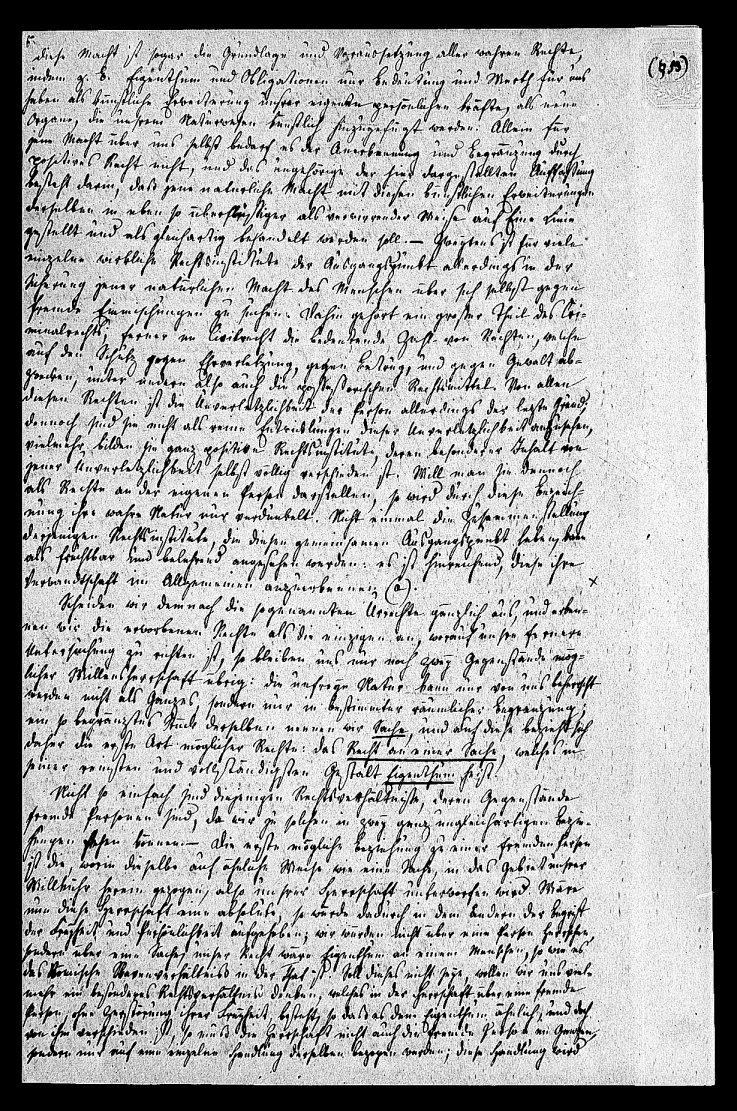 5.
(§ 53)
diese Macht ist sogar die Grundlage und Voraussetzung aller wahren Rechte,
indem z. B. Eigenthum und Obligationen nur Bedeutung und Werth für uns
haben als künstliche Erweiterung unsrer eigenen persönlichen Kräfte, als neue
Organe, die unsrem Naturwesen künstlich hinzugefügt werden. Allein für
jene Macht über uns selbst bedarf es der Anerkennung und Begränzung durch
positives Recht nicht, und das ungehörige der hier dargestellten Auffassung
besteht darin, dass jene natürliche Macht mit diesen künstlichen Erweiterungen
derselben in eben so überflüssiger als verwirrender Weise auf Eine Linie
gestellt und als gleichartig behandelt werden soll. — Zweytens ist für viele
einzelne wirkliche Rechtsinstitute der Ausgangspunkt allerdings in der
Sicherung jener natürlichen Macht des Menschen über sich selbst gegen
fremde Einmischungen zu suchen. Dahin gehört ein großer Theil des Cri-
minalrechts; ferner im Civilrecht die bedeutende Zahl von Rechten, welche
auf den Schutz gegen Ehrverletzung, gegen Betrug, und gegen Gewalt ab-
zwecken, unter andern also auch die possessorischen Rechtsmittel. Von allen
diesen Rechten ist die Unverletzlichkeit der Person allerdings der letzte Grund,
dennoch sind sie nicht als reine Entwicklungen dieser Unverletzlichkeit anzusehen,
vielmehr bilden sie ganz positive Rechtsinstitute, deren besonderer Inhalt von
jener Unverletzlichkeit selbst völlig verschieden ist. Will man sie dennoch
als Rechte an der eigenen Person darstellen, so wird durch diese Bezeich-
nung ihre wahre Natur nur verdunkelt. Nicht einmal die Zusammenstellung
derjenigen Rechtsinstitute, die diesen gemeinsamen Ausgangspunkt haben, kann
als fruchtbar und belehrend angesehen werden: es ist hinreichend, diese ihre
Verwandtschaft im Allgemeinen anzuerkennen (a).
Scheiden wir demnach die sogenannten Urrechte gänzlich aus, und erken-
nen wir die erworbenen Rechte als die einzigen an, worauf unsre fernere
Untersuchung zu richten ist, so bleiben uns nur noch zwey Gegenstände mög-
licher Willensherrschaft übrig: die unfreye Natur kann nur von uns beherrscht
werden nicht als Ganzes, sondern nur in bestimmter räumlicher Begrenzung;
ein so begränztes Stück derselben nennen wir Sache, und auf diese bezieht sich
daher die erste Art möglicher Rechte: das Recht an einer Sache, welches in
seiner reinsten und vollständigsten Gestalt Eigenthum heißt.
Nicht so einfach sind diejenigen Rechtsverhältnisse, deren Gegenstände
fremde Personen sind, da wir zu solchen in zwey ganz ungleichartigen Bezie-
hungen stehen können. — Die erste mögliche Beziehung zu einer fremden Person
ist die, worin dieselbe auf ähnliche Weise wie eine Sache, in das Gebiet unsrer
Willkühr herein gezogen, also unsrer Herrschaft unterworfen wird. Wäre
nun diese Herrschaft eine absolute, so würde dadurch in dem Andern der Begriff
der Freyheit und Persönlichkeit aufgehoben; wir würden nicht über eine Person herrschen,
sondern über eine Sache, unser Recht wäre Eigenthum an einem Menschen, so wie es
das Römische Sklavenverhältniß in der That ist. Soll dieses nicht seyn, wollen wir uns viel-
mehr ein besonderes Rechtsverhältnis denken, welches in der Herrschaft über eine fremde
Person, ohne Zerstörung ihrer Freyheit, besteht, so dass es dem Eigenthum ähnlich, und doch
von ihm verschieden ist, so muss die Herrschaft nicht auf die fremde Person im Ganzen,
sondern nur auf eine einzelne Handlung derselben bezogen werden; diese Handlung wird